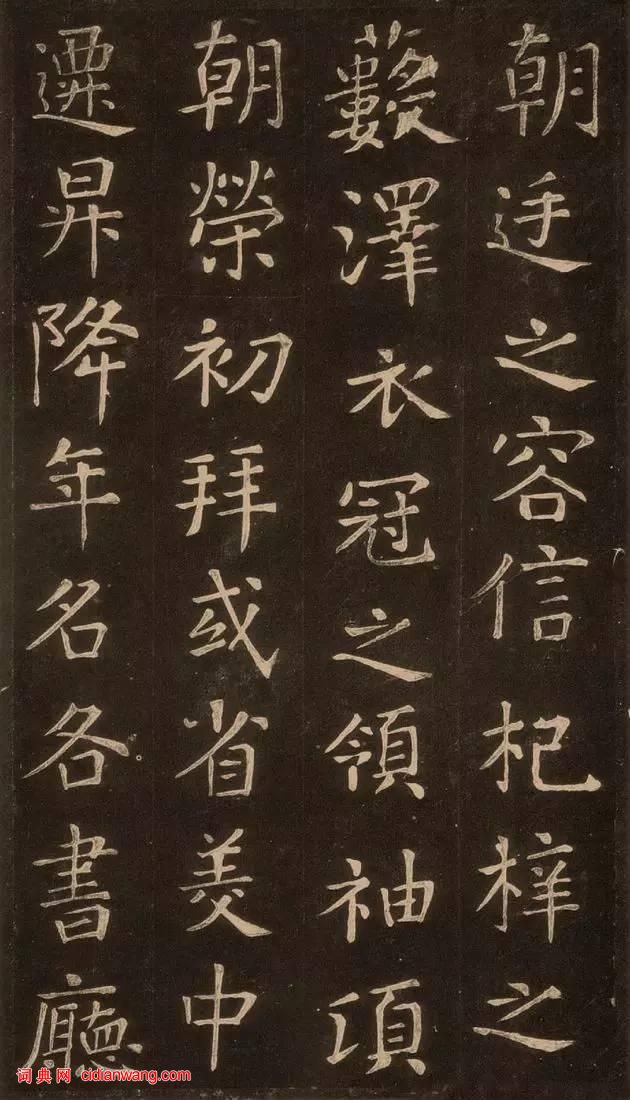 朝廷之容信杞梓之
藪澤衣冠之領袖頃
朝榮初拜或省美中
遷昇降年名各書廳
词典网 cidianwang.com